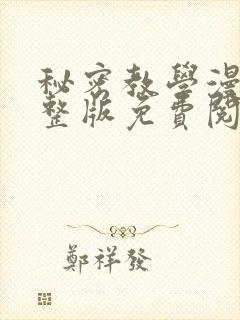 秘密教學漫
整版免費閱
鄭祥發